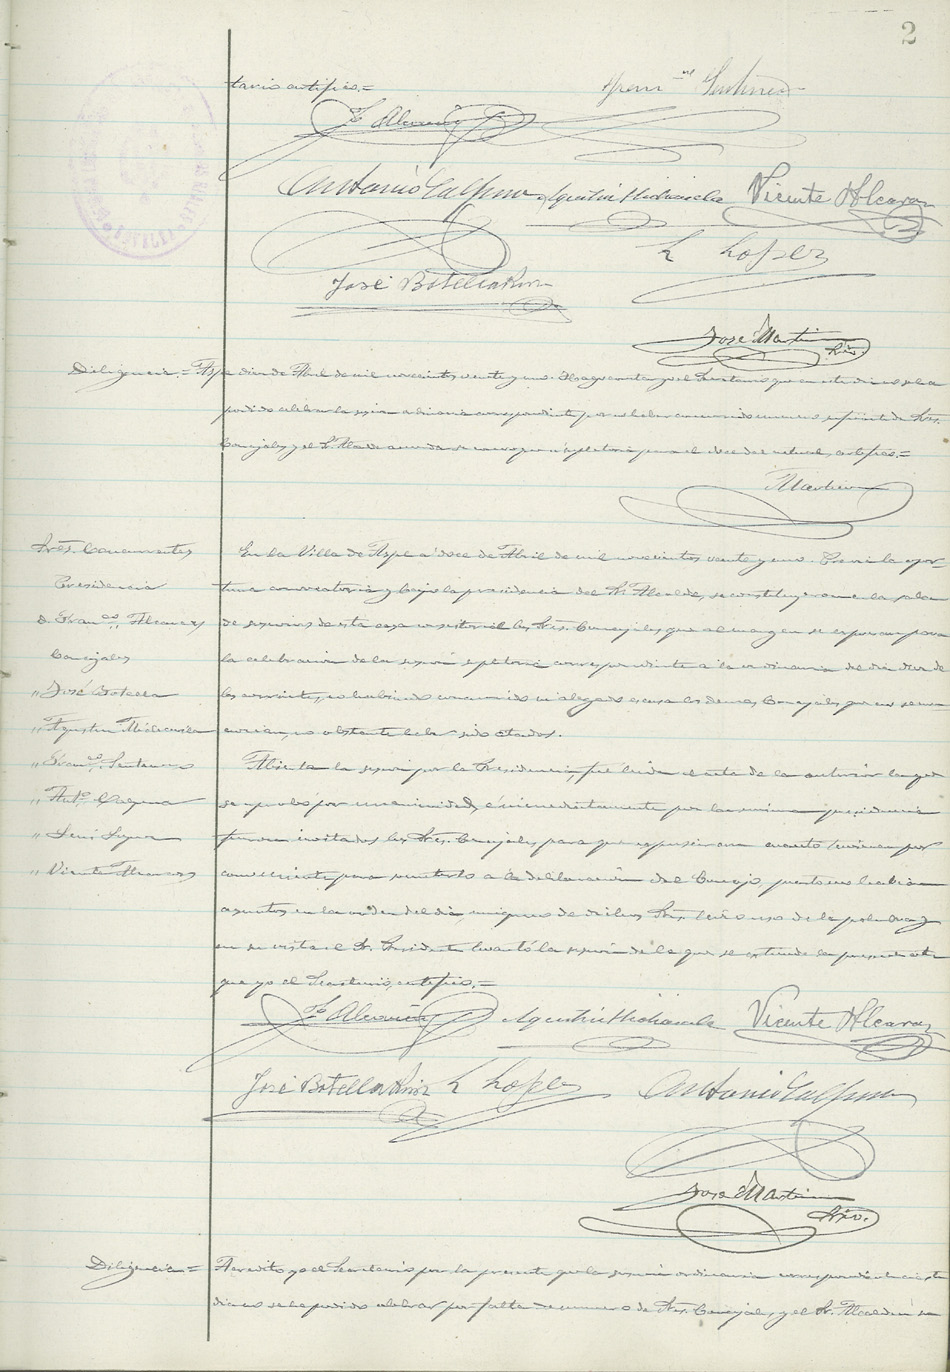 2
tario certifico.=
Fran.co Santonja
F.co Alcaraz
Antonio Calpena Agustín Mira Vicente Alcaraz
L. Lopez
José Botella
José Martin
Srio.
Diligencia.= Aspe diez de Abril de mil novecientos veinte y uno. Hago constar yo el Secretario que en este dia no se ha
podido celebrar la sesión ordinaria correspondiente, por no haber concurrido numero suficiente de Sres.
Concejales, y el Sr. Alcalde acuerda se convoque a supletoria para el doce del actual, certifico.=
Martin
Sres. Concurrentes
Presidencia
D. Fran.co Alcaraz
Concejales
" José Botella
" Agustin
" Fran.co
" Ant.o Calpena
" Luis Lopez
" Vicente Alcaraz
En la Villa de Aspe a doce de Abril de mil novecientos veinte y uno. Previa la opor-
tuna convocatoria y bajo la presidencia del Sr. Alcalde, se constituyeron en la sala
de sesiones de esta casa consistorial los Sres. Concejales que al margen se expresan para
la celebración de la sesión supletoria correspondiente a la ordinaria del dia diez de
los corrientes, no habiendo concurrido ni alegado excusa los demas Concejales que no se
no obstante haber sido citados.
Abierta la sesión por la Presidencia, fué leida el acta de la anterior la que
se aprobó por unanimidad, e inmediatamente por la misma presidencia
fueron invitados los Sres. Concejales para que expusieran cuanto tuvieran por
conveniente para someterlo a la deliberación del Concejo, puesto no habian
asuntos en la orden del dia, ninguno de dichos Sres. hizo uso de la palabra y
en su vista el Sr. Presidente levantó la sesión de la que se extiende la presente acta
que yo el Secretario, certifico.=
F.co Alcaraz Agustín Vicente Alcaraz
José Botella L. Lopez Antonio Calpena
José Martin
Srio.
Diligencia = Acredito yo el Secretario por la presente que la sesión ordinaria correspondiente a este
dia no se ha podido celebrar por falta de numero de Sres. Concejales, y el Sr. Alcalde